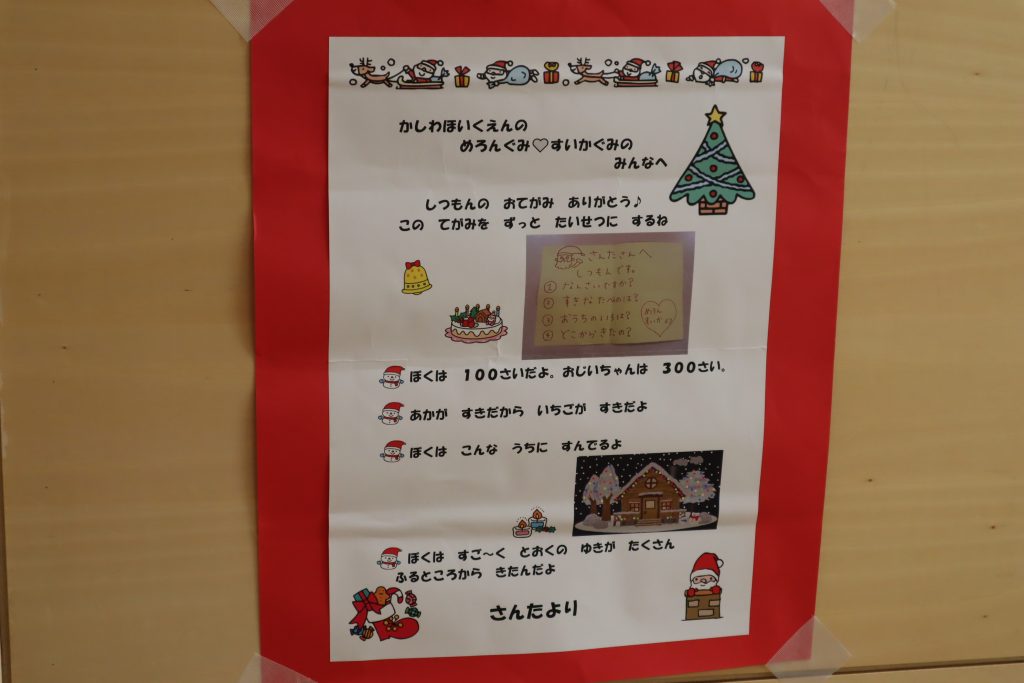 かしわほいくえんの
めろんぐみ♡すいかぐみの
みんなへ
しつもんの おてがみ ありがとう♪
この てがみを ずっと たいせつに するね
さんたさんへ
しつもんです。
① なんさいですか?
② すきなたべものは?
③ おうちのいろは?
④ どこからきたの?
めろん
すいかより
ぼくは 100さいだよ。おじいちゃんは 300さい。
あかが すきだから いちごが すきだよ
ぼくは こんな うちに すんでるよ
ぼくは すご~く とおくの ゆきが たくさん
ふるところから きたんだよ
さんたより